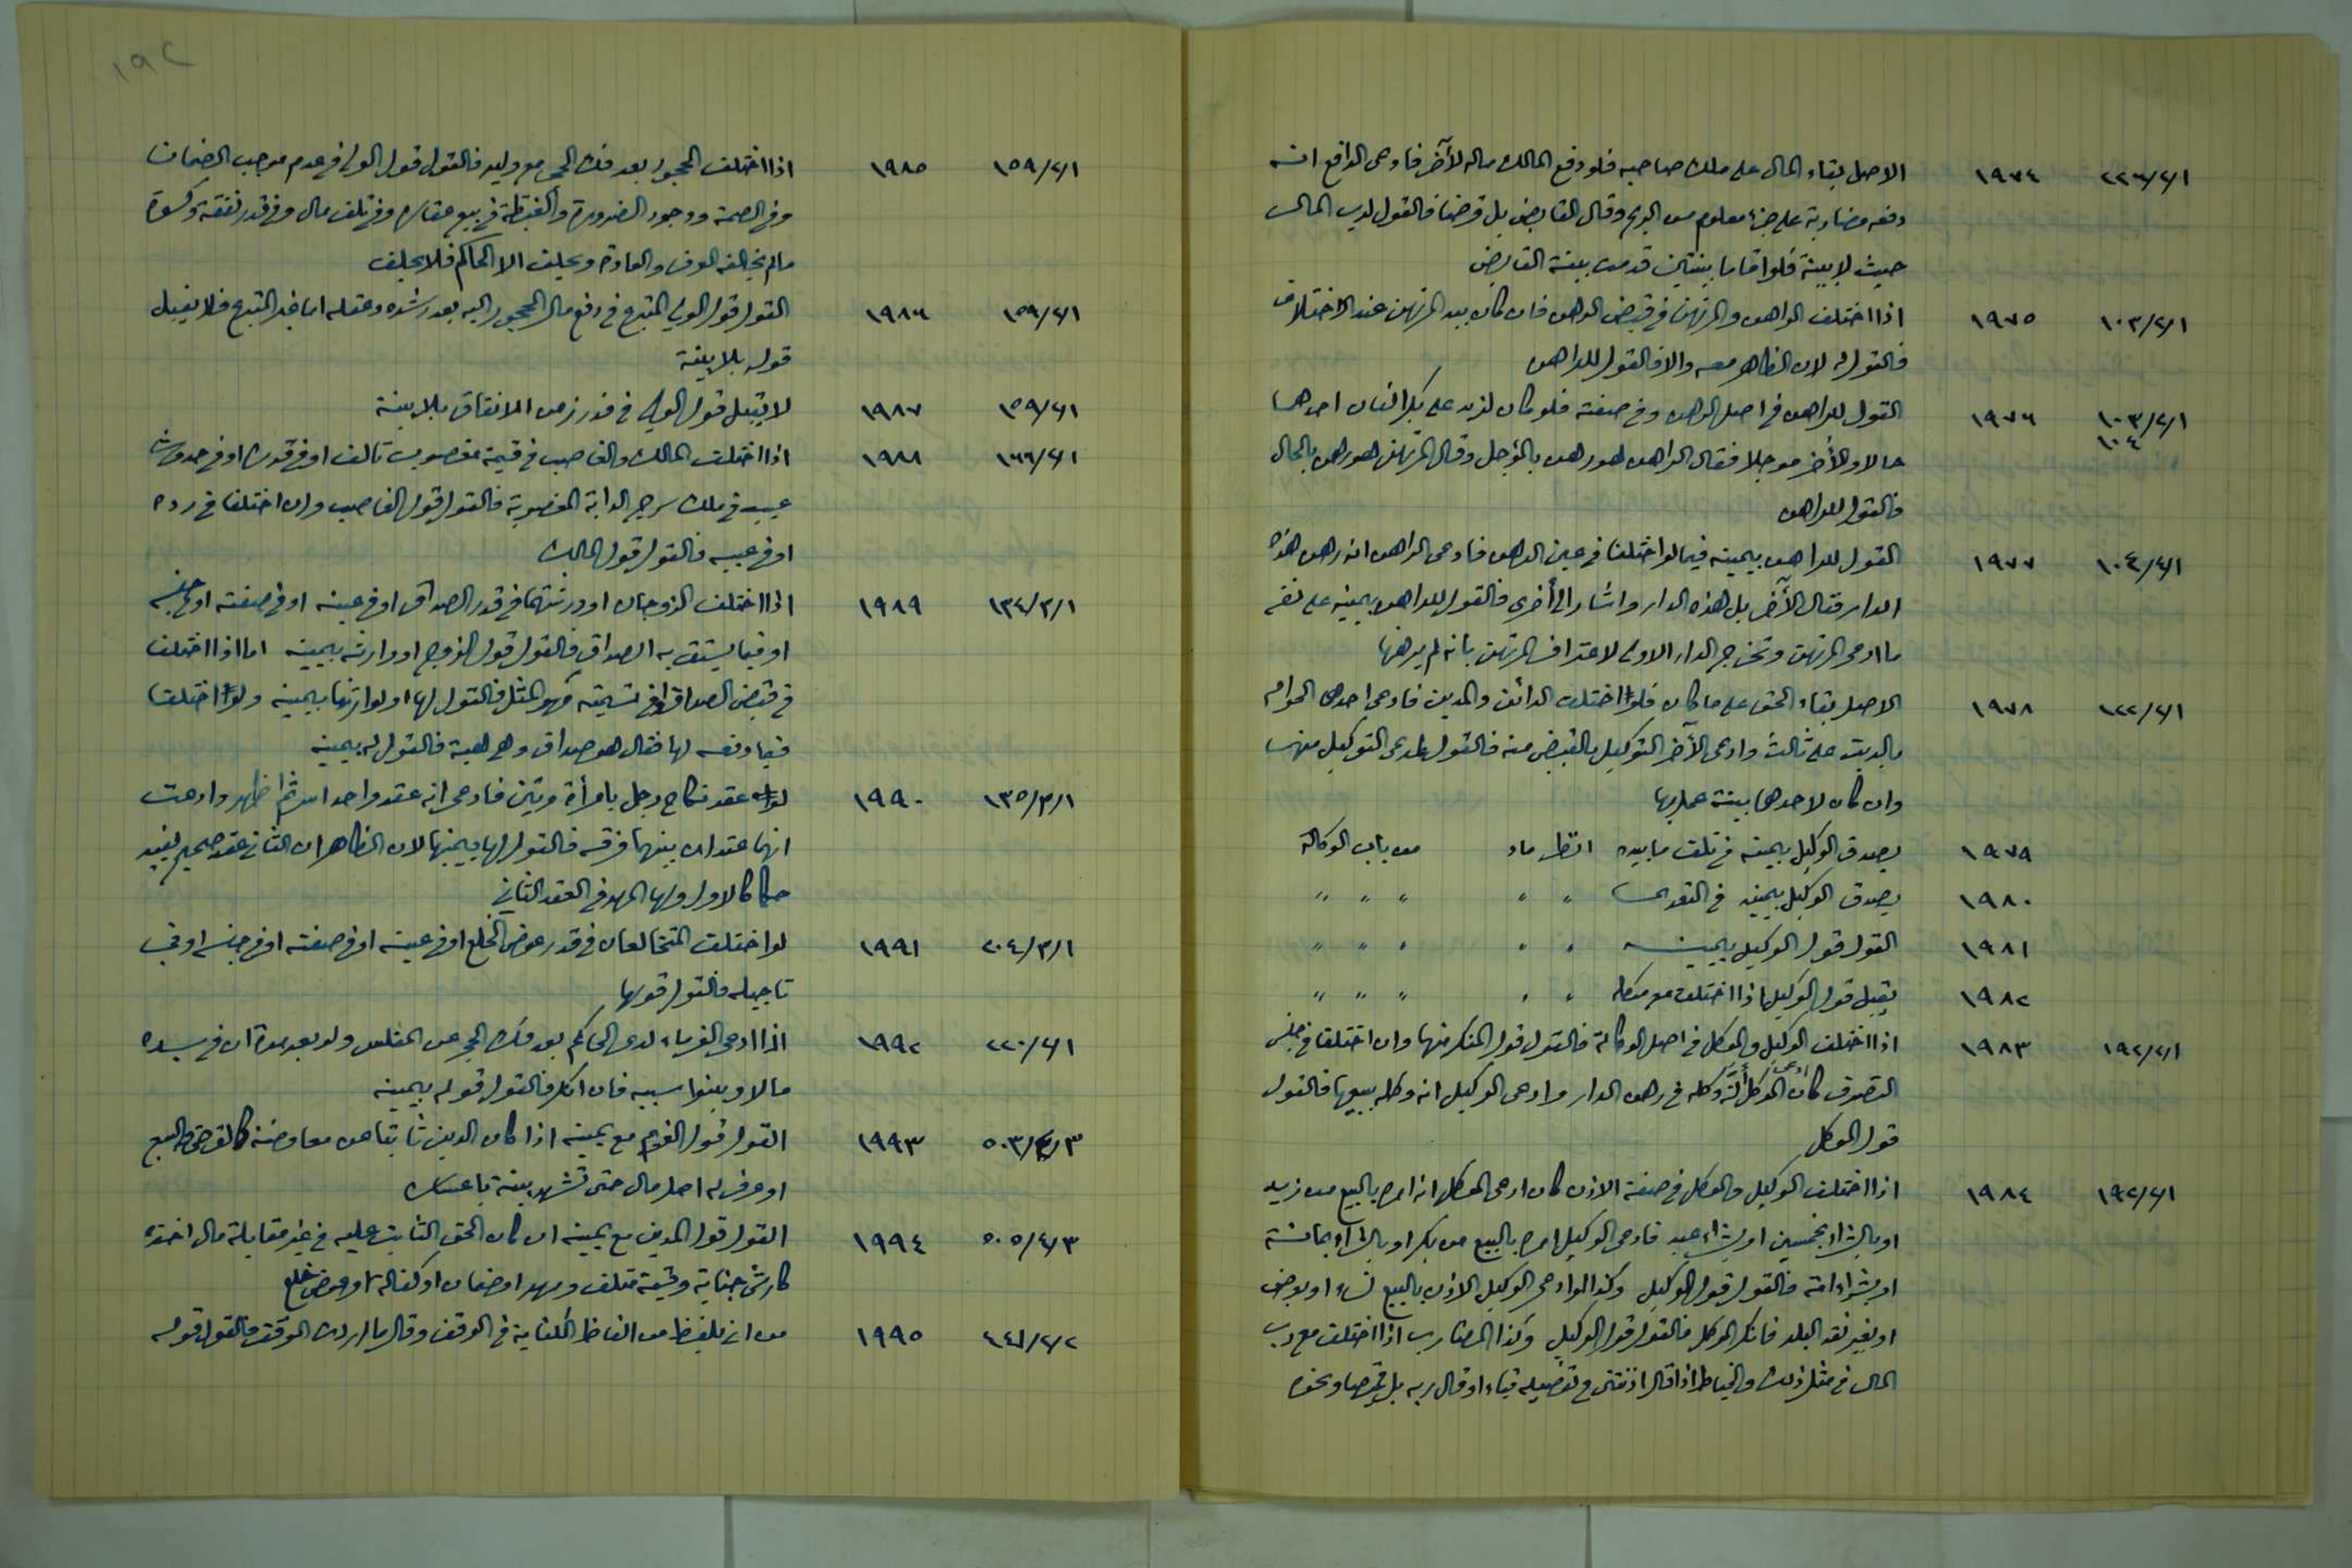 ٢٢٣/٢/١ ١٩٧٤ الاصل بقاء المال على ملك صاحبه فلو دفع المالك ماله لآخر فادعى الدافع انه
دفعه مضاربة على جزء معلوم من الربح وقال القابض بل قرضا فالقول لرب المال
حيث لا بينة فلو اقاما بينتين قدمت بينة القابض
١٠٣/٢/١ ١٩٧٥ اذا اختلف الراهن والمرتهن في قبض الرهن فان كان بيد المرتهن عند الاختلاف
فالقول له لان الظاهر معه والا فالقول للراهن
١٠٣/٢/١ ١٠٤ ١٩٧٦ القول للراهن في اصل الرهن وفي صفته فلو كان لزيد على بكر الفان احدهما
حالا والآخر مؤجلا فقال الراهن هو رهن بالمؤجل وقال المرتهن هو رهن بالحال
فالقول للراهن
١٠٤/٢/١ ١٩٧٧ القول للراهن بيمينه فيما لو اختلفا في عين الرهن فادعى الراهن انه رهن هذه
الدار فقال الآخر بل هذه الدار واشار الى أخرى فالقول للراهن بيمينه على نفي
ما ادعى المرتهن وتخرج الدار الاولى لاعتراف المرتهن بانه لم يرهنها
١٢٢/٢/١ ١٩٧٨ الاصل بقاء الحق على ما كان فلو اختلف الدائن والمدين فادعى احدهما الحوالة
بالدين على ثالث وادعى الآخر التوكيل بالقبض منه فالقول لمدعي التوكيل منهما
وان كان لاحدهما بينة عمل بها
١٩٧٩ يصدق الوكيل بيمينه في تلف ما بيده انظر ماد من باب الوكالة
١٩٨٠ يصدق الوكيل بيمينه في التعدي " " " " "
١٩٨١ القول قول الوكيل بيمينه " " " " "
١٩٨٢ يقبل قول الوكيل اذا اختلف مع موكله " " " " "
١٩٢/٢/١ ١٩٨٣ اذا اختلف الوكيل والموكل في اصل الوكالة فالقول قول المنكر منهما وان اختلفا في جنس
التصرف كان ادعى الموكل أنه وكله في رهن الدار وادعى الوكيل انه وكله ببيعها فالقول
قول الموكل
١٩٢/٢/١ ١٩٨٤ اذا اختلف الوكيل والموكل في صفة الاذن كان ادعى الموكل انه امره بالبيع من زيد
او بالشراء بخمسين او بشراء عبد فادعى الوكيل امره بالبيع من بكر او بالشراء بمائة
او بشراء امة فالقول قول الوكيل وكذا لو ادعى الوكيل الاذن بالبيع نساء او بعرض
او بغير نقد البلد فانكر الموكل فالقول قول الوكيل وكذا المضارب اذا اختلف مع رب
المال في مثل ذلك والخياط اذا قال اذنتني في تفصيله قباء او قال ربه بل قميصا ونحوه
١٩٢
١٥٩/٢/١ ١٩٨٥ اذا اختلف المحجور بعد فك الحجر مع وليه فالقول قول الولي في عدم موجب الضمان
وفي المصلحة ووجود الضرورة والغبطة في بيع عقاره وفي تلف مال وفي قدر نفقة وكسوة
ما لم يخالفه العرف والعادة ويحلف الا الحاكم فلا يحلف
١٥٩/٢/١ ١٩٨٦ القول قول الولي المتبرع في دفع مال المحجور اليه بعد رشده وعقله اما غير المتبرع فلا يقبل
قوله بلا بينة
١٥٩/٢/١ ١٩٨٧ لا يقبل قول الولي في قدر زمن الانفاق بلا بينة
١٦٦/٢/١ ١٩٨٨ اذا اختلف المالك والغاصب في قيمة مغصوب تالف او في قدره او في حدوث
عيب في ملك سرج الدابة المغصوبة فالقول قول الغاصب وان اختلفا في رده
او في عيبه فالقول قول المالك
١٣٤/٣/١ ١٩٨٩ اذا اختلف الزوجان او ورثتهما في قدر الصداق او في عينه او في صفته او في جنسه
او فيما يستقر به الصداق فالقول قول الزوج او وارثه بيمينه اما اذا اختلف
في قبض الصداق او في تسمية مهر المثل فالقول لها او لوارثها بيمينه ولو اختلفا
فيما دفعه لها فقال هو صداق وهي هبة فالقول له بيمينه
١٣٥/٣/١ ١٩٩٠ لو عقد نكاح رجل بامرأة مرتين فادعى انه عقد واحد اسر ثم اظهر وادعت
انهما عقدان بينهما فرقه فالقول لها بيمينها لان الظاهر ان الثاني عقد صحيح يفيد
حكما كالاول ولها المهر في العقد الثاني
٢٠٤/٣/١ ١٩٩١ لو اختلف المتخالعان في قدر عوض الخلع او في عينه او في صفته او في جنسه او في
تاجيله فالقول قولها
٢٢٠/٢/١ ١٩٩٢ اذا ادعى الغرماء لدى الحاكم بعد فك الحجر عن المفلس ولو بعد مدة ان في يده
مالا وبينوا سببه فان انكر فالقول قوله بيمينه
٥٠٣/٤/٣ ١٩٩٣ القول قول الغريم مع يمينه اذا كان الدين ثابتا عن معاوضة كالقرض والبيع
او عرف له اصل مال حتى تشهد بينة باعساره
٥٠٥/٤/٣ ١٩٩٤ القول قول المدين مع يمينه ان كان الحق الثابت عليه في غير مقابلة مال اخذه
كارش جناية وقيمة متلف ومهر او ضمان او كفالة او عوض خلع
٤٤١/٢/٢ ١٩٩٥ من اتى بلفظ من الفاظ الكناية في الوقف وقال ما اردت الوقف فالقول قوله